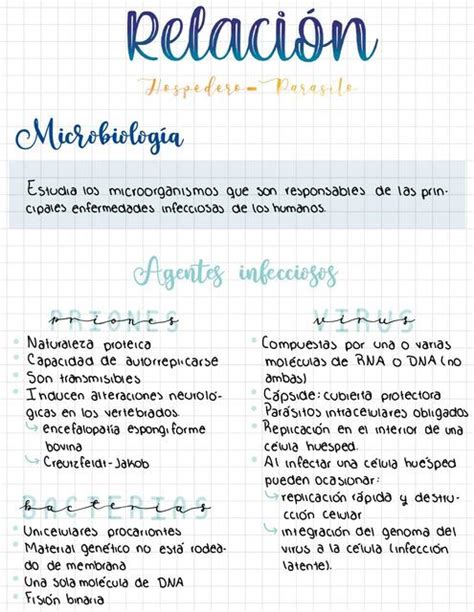 Relación
Hospedero - Parasito
Microbiología
Estudia los microorganismos que son responsables de las prin-
cipales enfermedades infecciosas de los humanos.
Agentes infecciosos
priones
PRIONES
Naturaleza proteica
Capacidad de autorreplicarse
Son transmisibles
Inducen alteraciones neuroló-
gicas en los vertebrados.
encefalopatía espongiforme
bovina
Creutzfeldt-Jakob
bacterias
BACTERIAS
Unicelulares procariontes
Material genético no está rodea-
do de membrana
Una sola molécula de DNA
Fisión binaria
virus
VIRUS
Compuestas por una o varias
moléculas de RNA o DNA (no
ambas)
Cápside: cubierta protectora
Parásitos intracelulares obligados
Replicación en el interior de una
célula huesped.
Al infectar una célula huésped
pueden ocasionar:
replicación rápida y destru-
cción celular
integración del genoma del
virus a la célula (infección
latente).